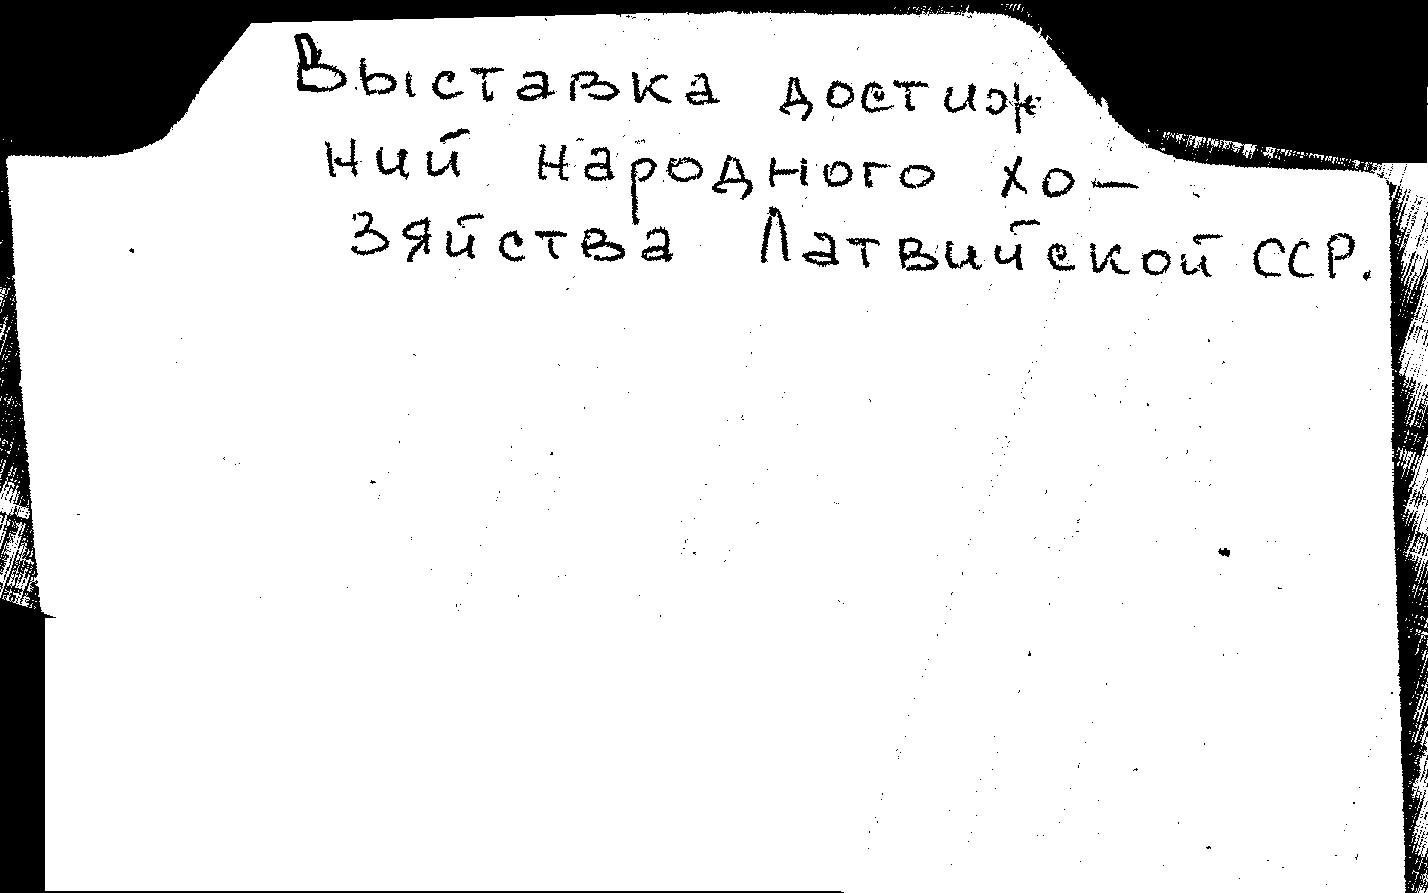 Выставка достиж
ний народного хо-
зяйства Латвийской ССР.